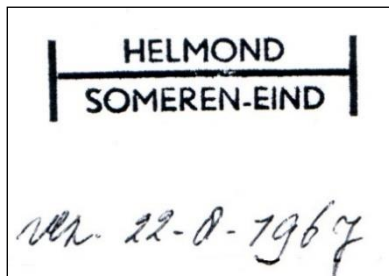 HELMOND
SOMEREN-EIND
ver. 22-8-1967